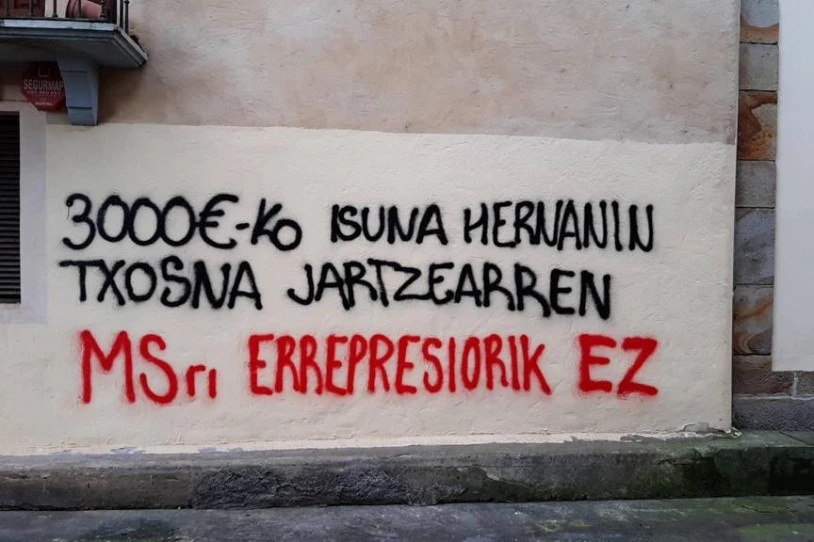 SEGURMAP
3000€-KO ISUNA HERNANIN
TXOSNA JARTZEARREN
MSri ERREPRESIORIK EZ